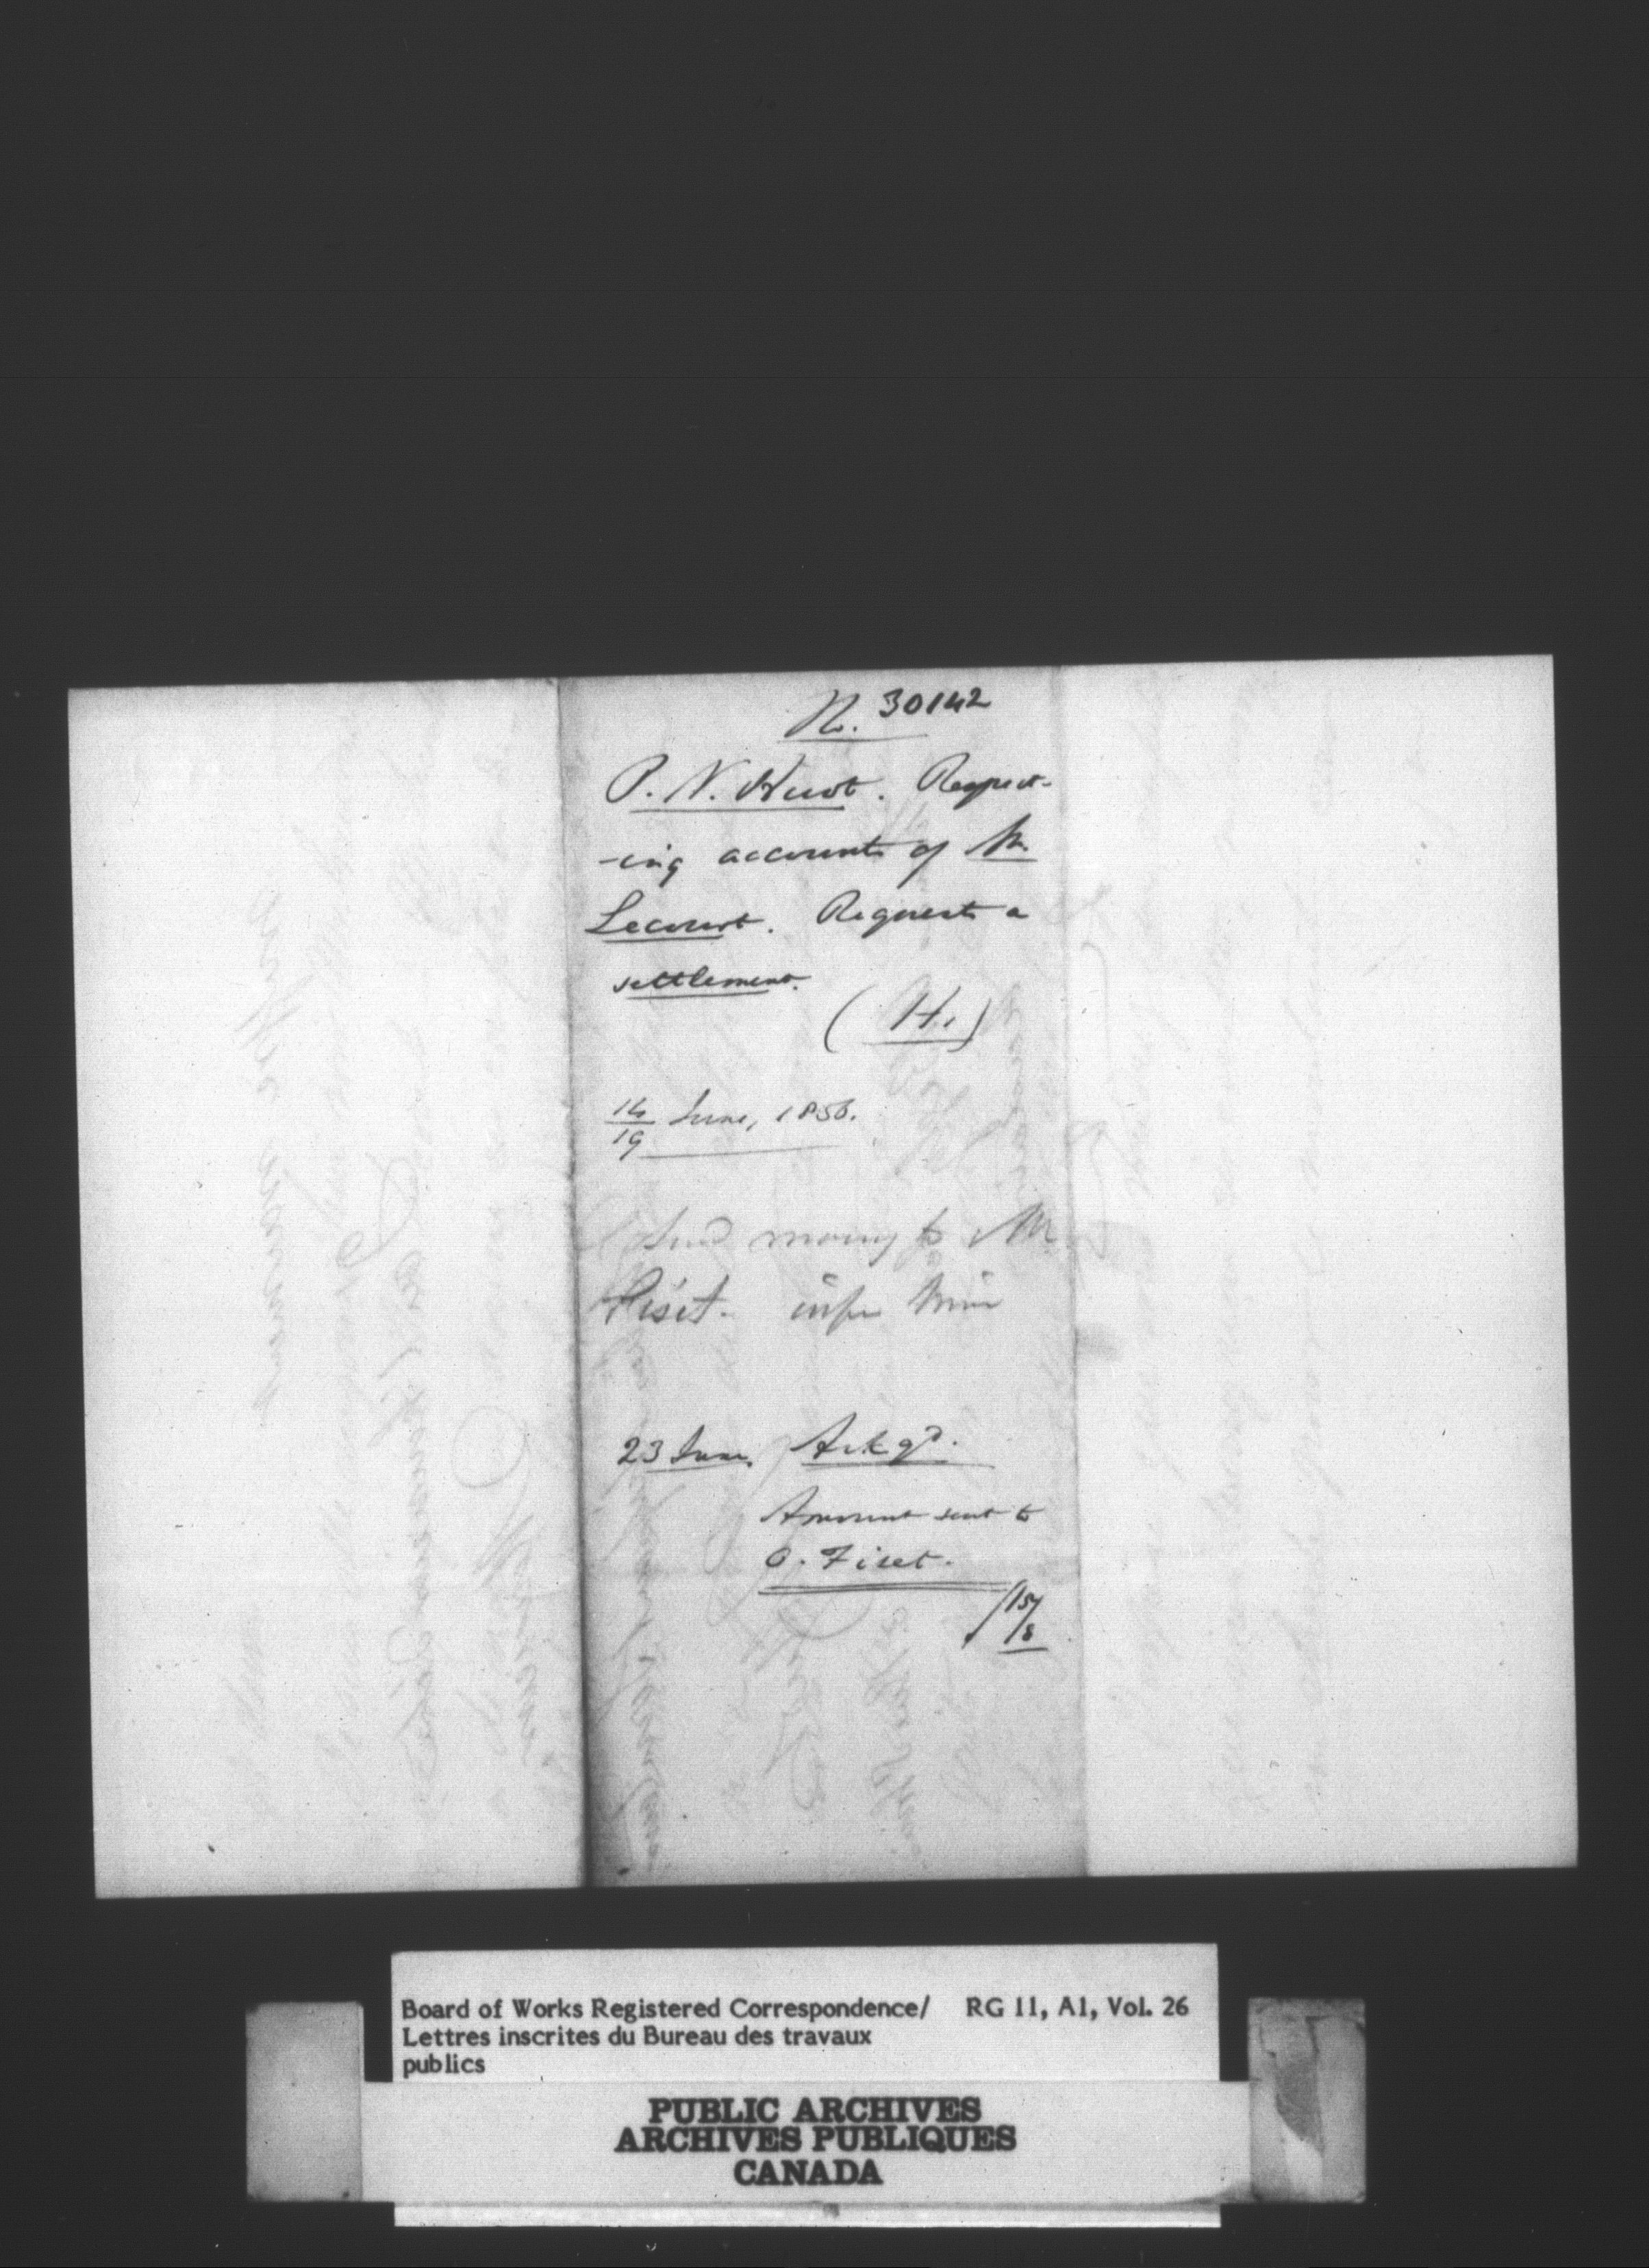 No. 30142
P. N. Huot. Respect-
-ing accounts of Mr.
Lecourt. Requests a
settlement.
(H.)
14/19 June, 1856.
Send money to Mr
Fiset.
23 June. Ackgd.
Amount sent to
O. Fiset.
Board of Works Registered Correspondence/ RG 11, A1, Vol. 26
Lettres inscrites du Bureau des travaux
publics
PUBLIC ARCHIVES
ARCHIVES PUBLIQUES
CANADA